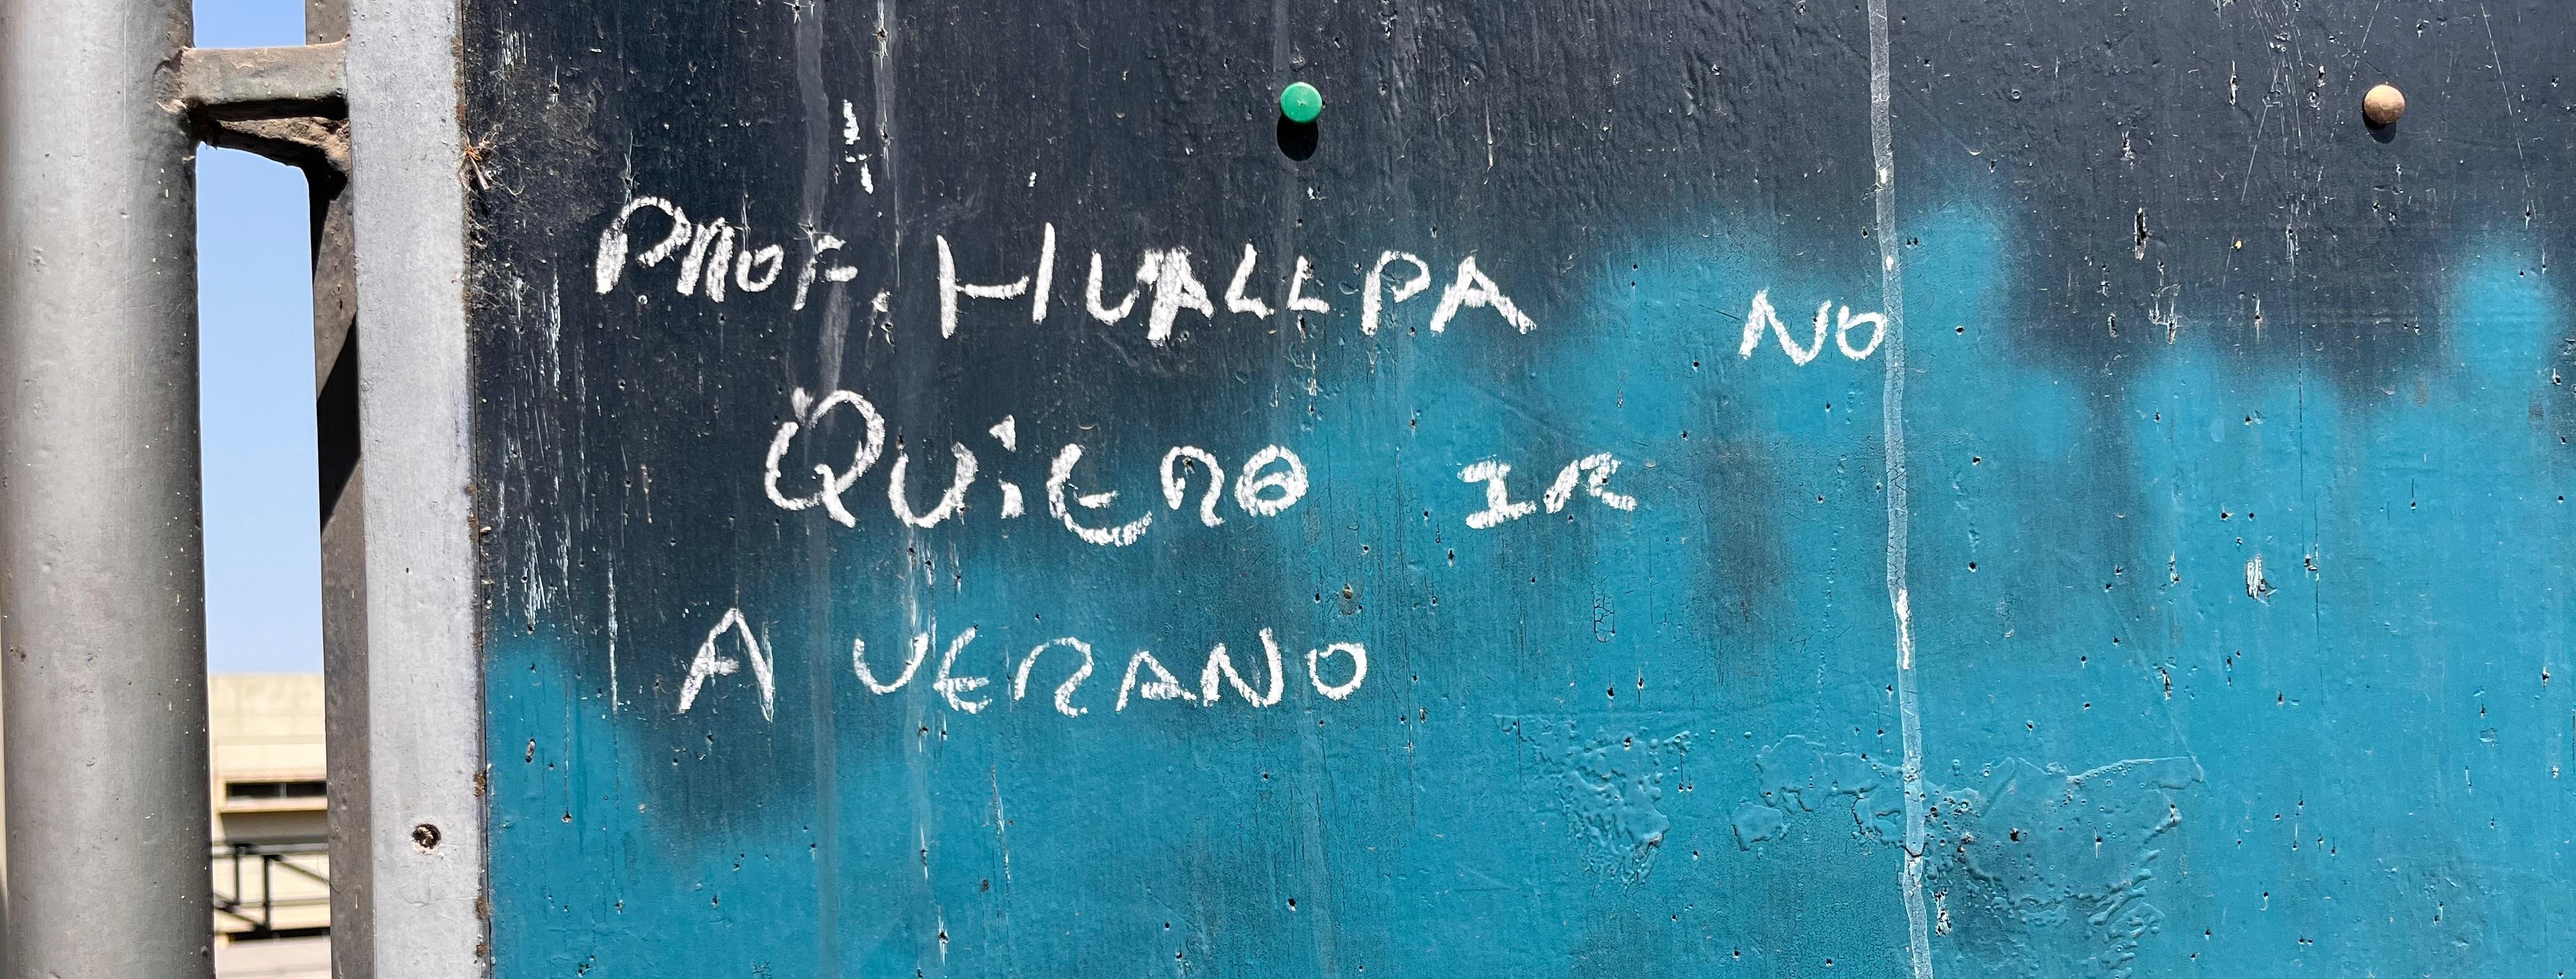 PROF. HUALLPA NO
QUiERO IR
A VERANO